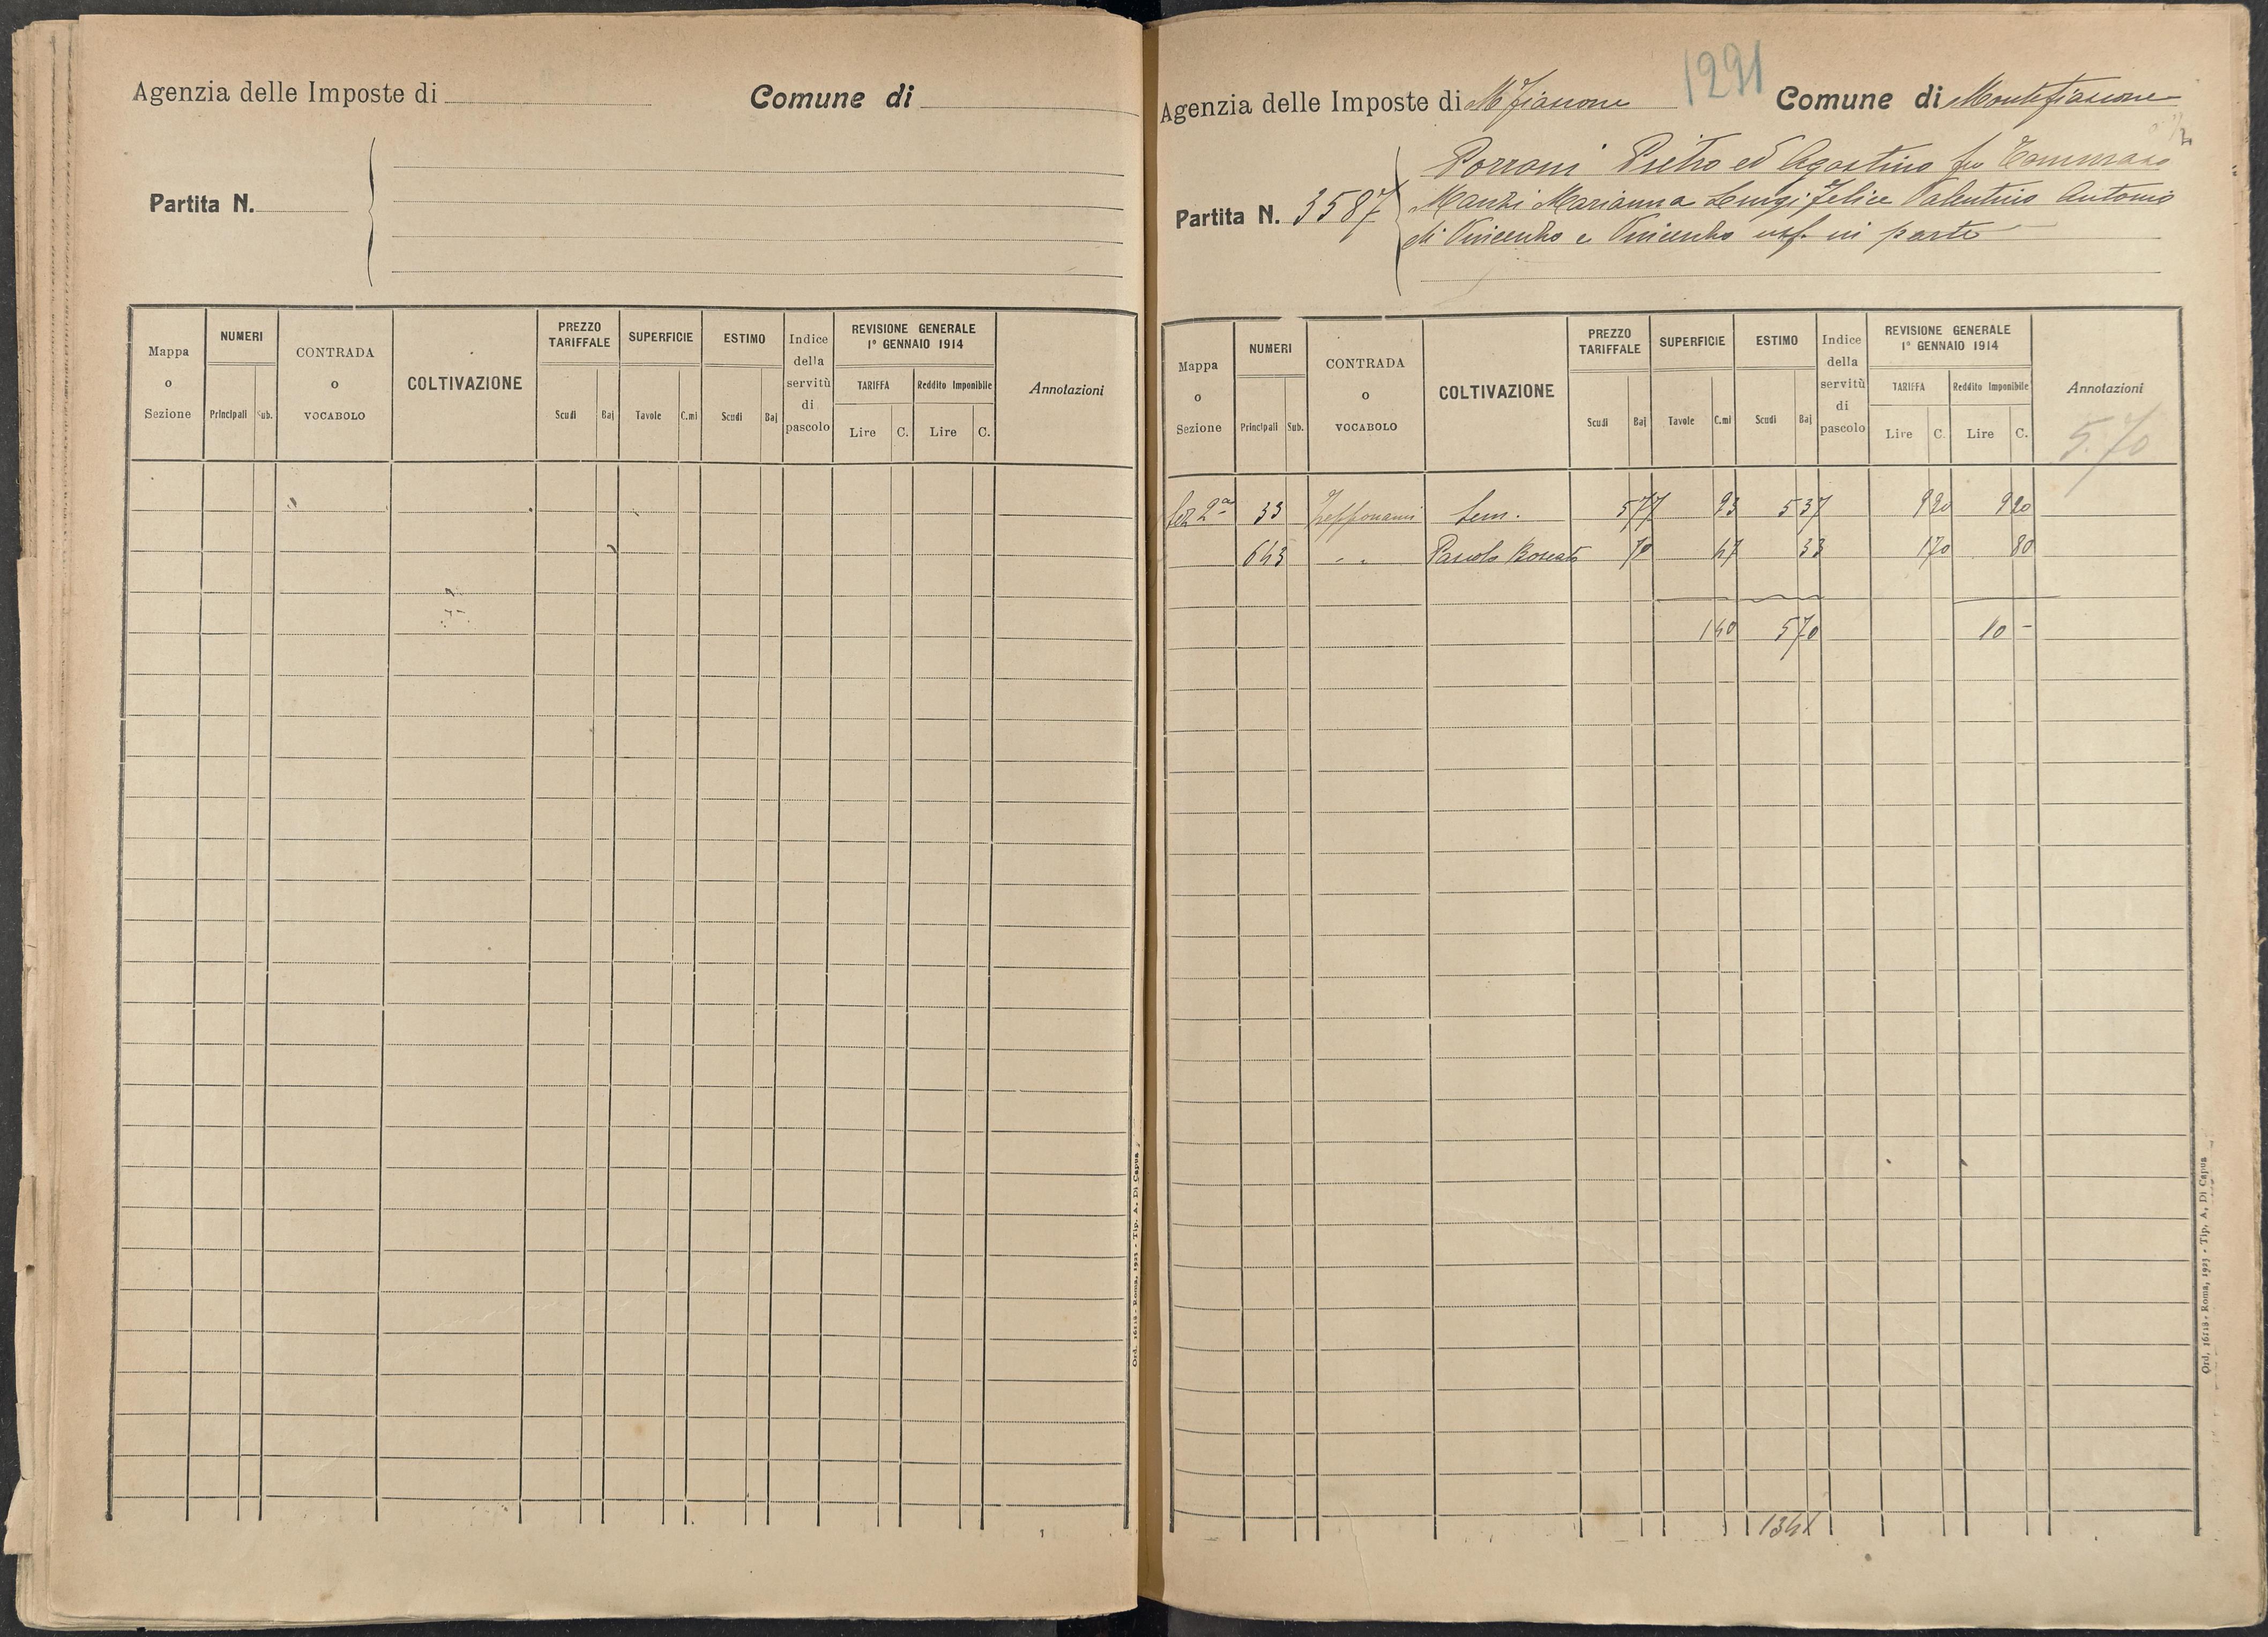 Agenzia delle Imposte di
Comune di
Partita N.
Mappa o Sezione
NUMERI
Principali
Sub.
CONTRADA o VOCABOLO
COLTIVAZIONE
PREZZO TARIFFALE
Scudi
Baj
SUPERFICIE
Tavole
C.mi
ESTIMO
Scudi
Baj
Indice della servitù di pascolo
REVISIONE GENERALE
1° GENNAIO 1914
TARIFFA
Reddito Imponibile
Lire
C.
Lire
C.
Annotazioni
Ord. 16118 - Roma, 1923 - Tip. A. Di Capua
1291
Agenzia delle Imposte di M Fiascone
Comune di Montefiascone
Partita N. 3587
Porroni Pietro ed Agostino fu Tommaso
Manzi Marianna Luigi Felice Valentino Antonio
di Vincenzo e Vincenzo usf. in parte
Mappa o Sezione
NUMERI
Principali
Sub.
CONTRADA o VOCABOLO
COLTIVAZIONE
PREZZO TARIFFALE
Scudi
Baj
SUPERFICIE
Tavole
C.mi
ESTIMO
Scudi
Baj
Indice della servitù di pascolo
REVISIONE GENERALE
1° GENNAIO 1914
TARIFFA
Reddito Imponibile
Lire
C.
Lire
C.
Annotazioni
5.70
Sez 2ª 33 Zepponami Sem. 577 93 537 920 920
643 " " Pascolo Boscato 70 47 33 170 80
140 570 10 -
Ord. 16118 - Roma, 1923 - Tip. A. Di Capua